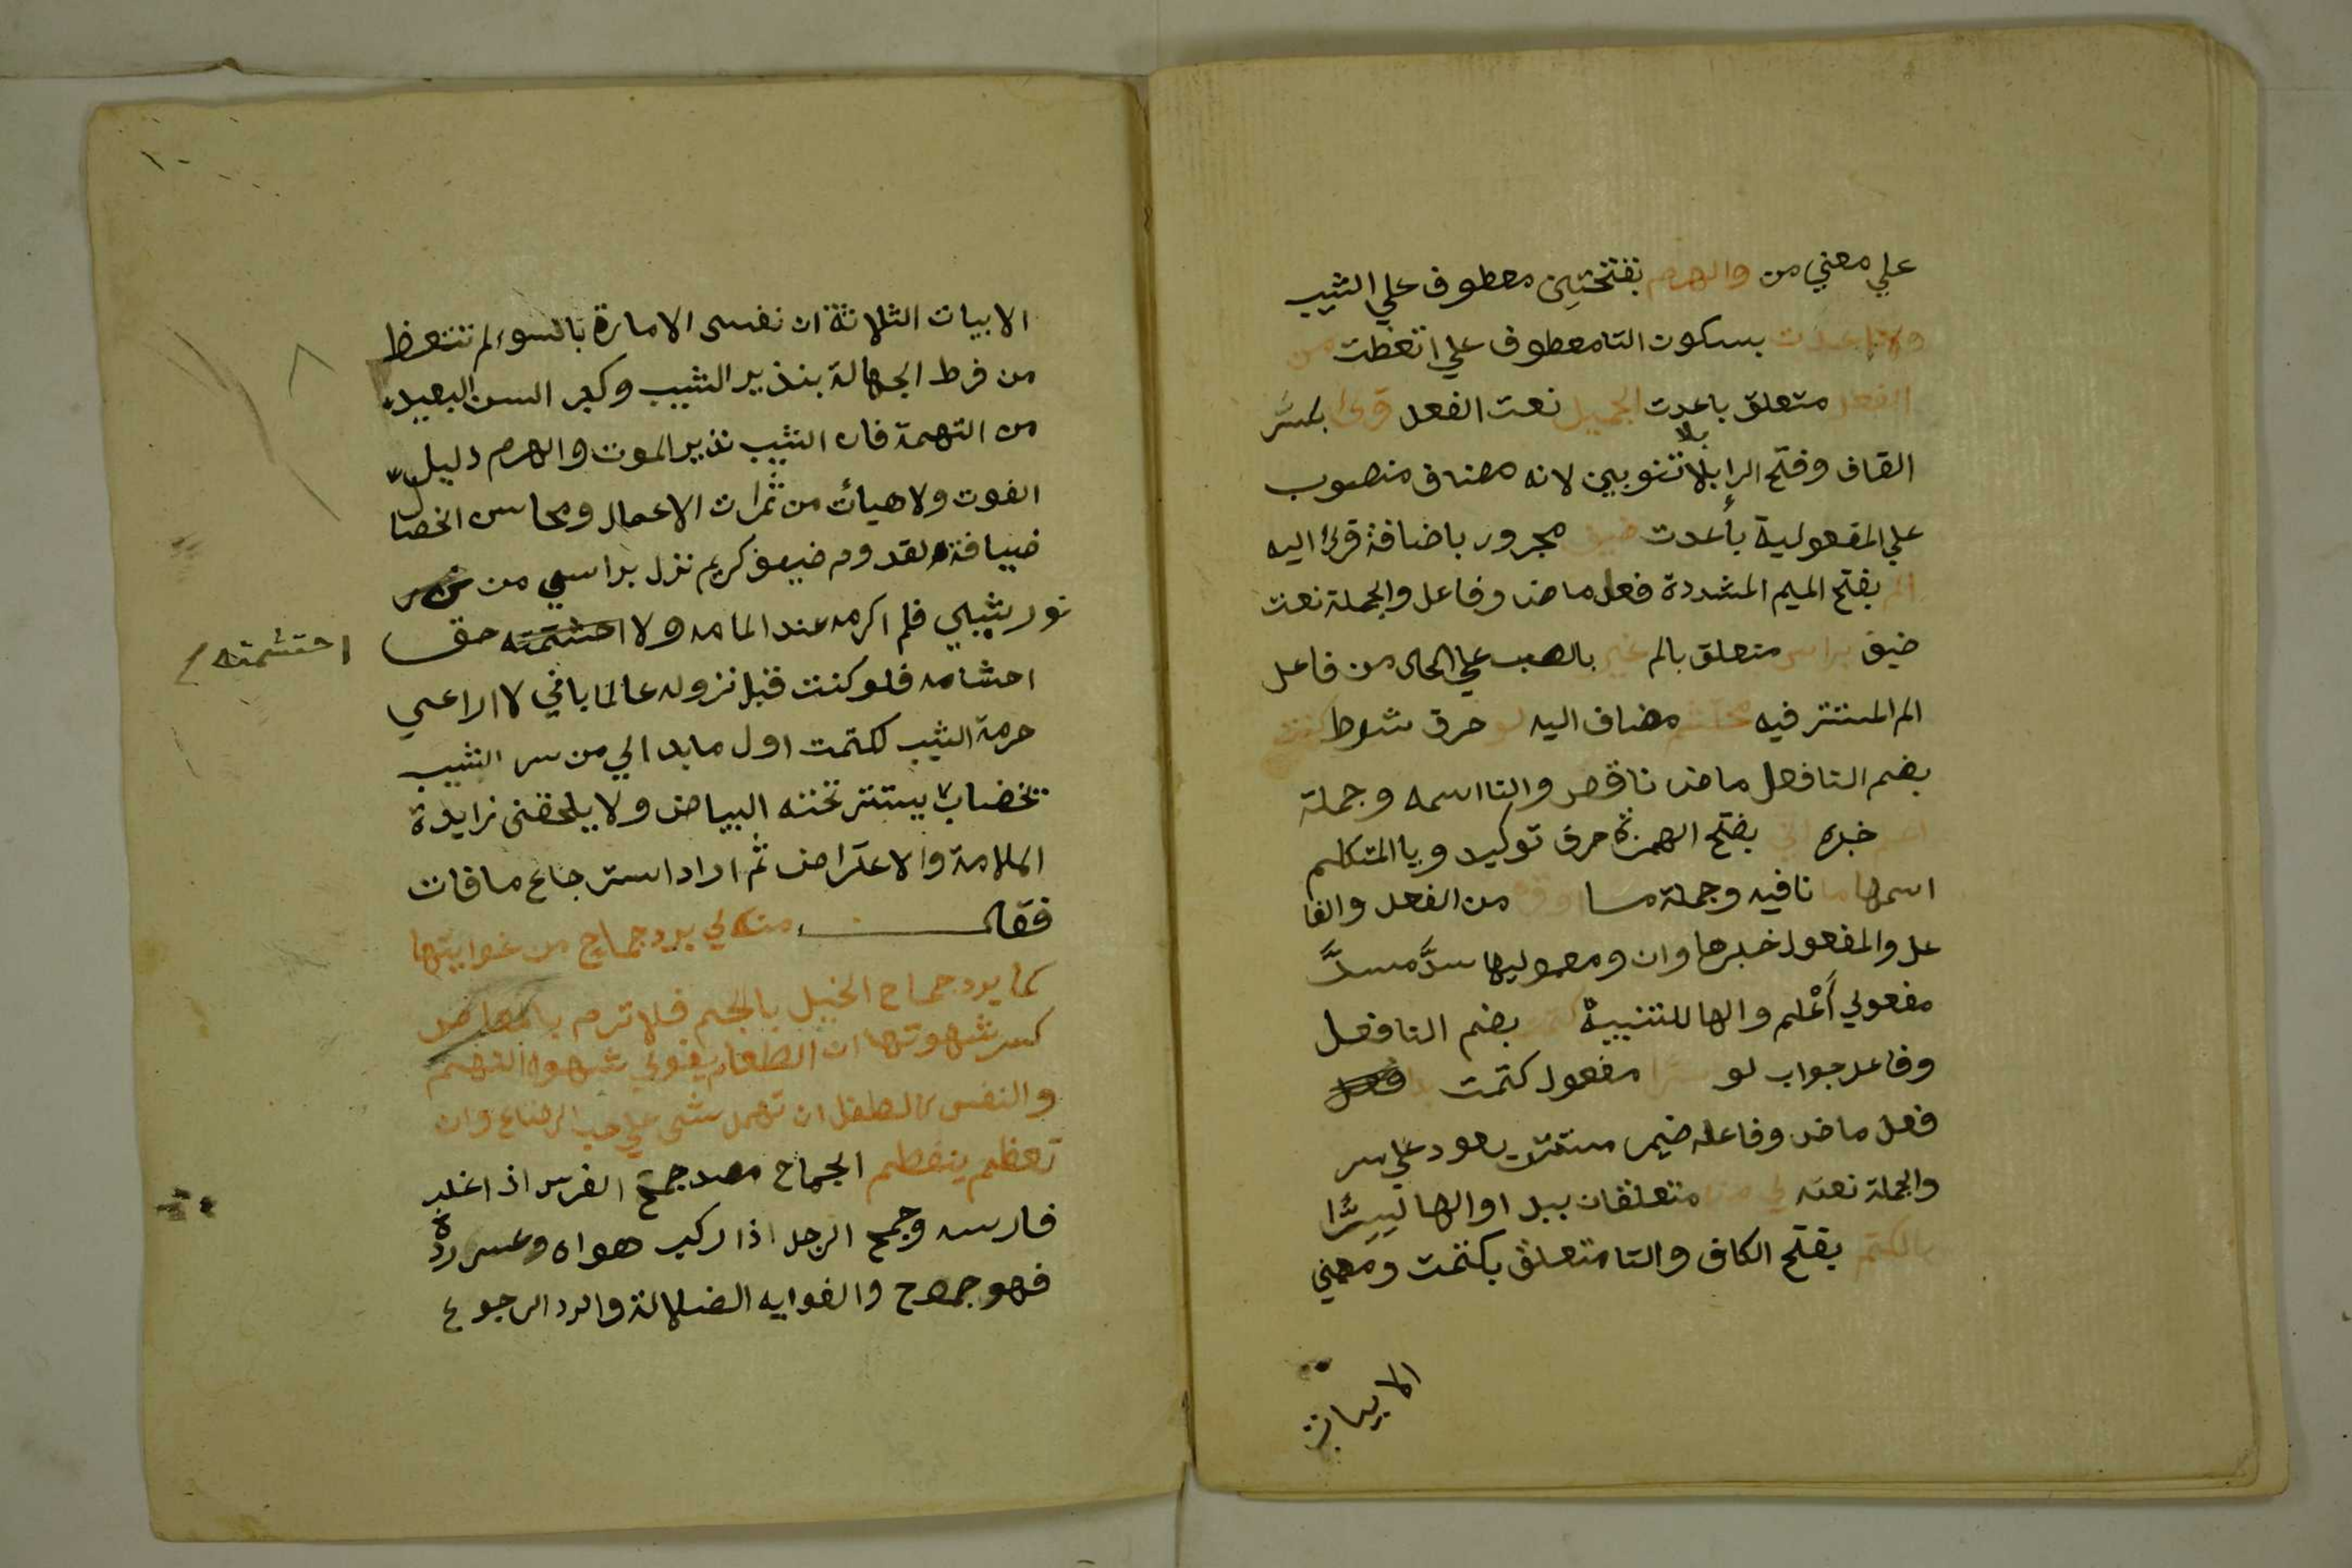 علي معني من والهرم بفتحتين معطوف علي الشيب
ولا اعدت بسكون التا معطوف علي اتعظت من
الفعل متعلق باعدت الجميل نعت الفعل قرى بكسر
القاف وفتح الرا بلا تنوين لانه مضاف منصوب
علي المفعولية بأعدت ضيف مجرور باضافة قرى اليه
الم بفتح الميم المشددة فعل ماض وفاعل والجملة نعت
ضيف براسي متعلق بالم غير بالصب علي الحال من فاعل
الم المستتر فيه محتشم مضاف اليه لو حرف شرط كنت
بضم التا فعل ماض ناقص والتا اسمه وجملة
اعلم خبره اني بفتح الهمزة حرف توكيد ويا المتكلم
اسمها ما نافيه وجملة من الفعل والفا
عل والمفعول خبرها وان ومعموليها سدَّ مسدَّ
مفعولي أعْلم والها للشيب كتمت بضم التا فعل
وفاعل جواب لو سرا مفعول كتمت بدا
فعل ماض وفاعله ضمير مستتر يعود علي سر
والجملة نعته لي منه متعلقان ببدا والها لسِرًّا
بالكتم بفتح الكاف والتا متعلق بكتمت ومعني
الابيات
١٠
الابيات الثلاثة ان نفسى الامارة بالسوء لم تتعظ
من فرط الجهالة بنذير الشيب وكبر السن البعيد
من التهمة فان الشيب نذير الموت والهرم دليل
الفوت ولا هيأت من ثمرات الاعمال ومحاسن الخصا
ضيافة لقدوم ضيف كريم نزل براسي من
نور شيبي فلم اكرمه عند المامه ولا احشمته حق
احتشمته
احشامه فلو كنت قبل نزوله عالما باني لا اراعي
حرمة الشيب لكتمت اول ما بدا لي من سر الشيب
بخضاب يستتر تحته البياض ولا يلحقنى زايدة
الملامة والاعتراض ثم اراد استرجاع ما فات
فقال من لي برد جماح من غوايتها
كما يرد جماح الخيل باللجم فلا ترم بالمعاصى
كسر شهوتها ان الطعام يقوي شهوة النهم
والنفس كالطفل ان تهمله شب علي حب الرضاع وان
تفطمه ينفطم الجماح مصدر جمح الفرس اذا غلب
فارسه وجمح الرجل اذا ركب هواه وعسر رده
فهو جموح والغوايه الضلالة والرد الرجوع